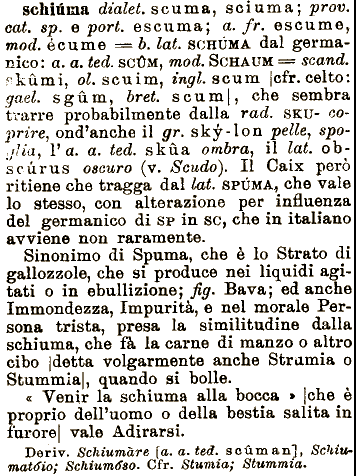 schiúma dialet. scuma, sciuma; prov.
cat. sp. e port. escuma; a. fr. escume,
mod. écume = b. lat. SCHÚMA dal germa-
nico: a. a. ted. SCÛM, mod. SCHAUM = scand.
skûmi, ol. scuim, ingl. scum |cfr. celto:
gael. sgûm, bret. scum|, che sembra
trarre probabilmente dalla rad. SKU- co-
prire, ond'anche il gr. ský-lon pelle, spo-
glia, l'a. a. ted. skûa ombra, il lat. ob-
scúrus oscuro (v. Scudo). Il Caix però
ritiene che tragga dal lat. SPÚMA, che vale
lo stesso, con alterazione per influenza
del germanico di SP in SC, che in italiano
avviene non raramente.
Sinonimo di Spuma, che è lo Strato di
gallozzole, che si produce nei liquidi agi-
tati o in ebullizione; fig. Bava; ed anche
Immondezza, Impurità, e nel morale Per-
sona trista, presa la similitudine dalla
schiuma, che fà la carne di manzo o altro
cibo |detta volgarmente anche Stramia o
Stummia|, quando si bolle.
« Venir la schiuma alla bocca » |che è
proprio dell'uomo o della bestia salita in
furore| vale Adirarsi.
Deriv. Schiumàre [a. a. ted. scûman], Schiu-
matóio; Schiumóso. Cfr. Stumia; Stummia.